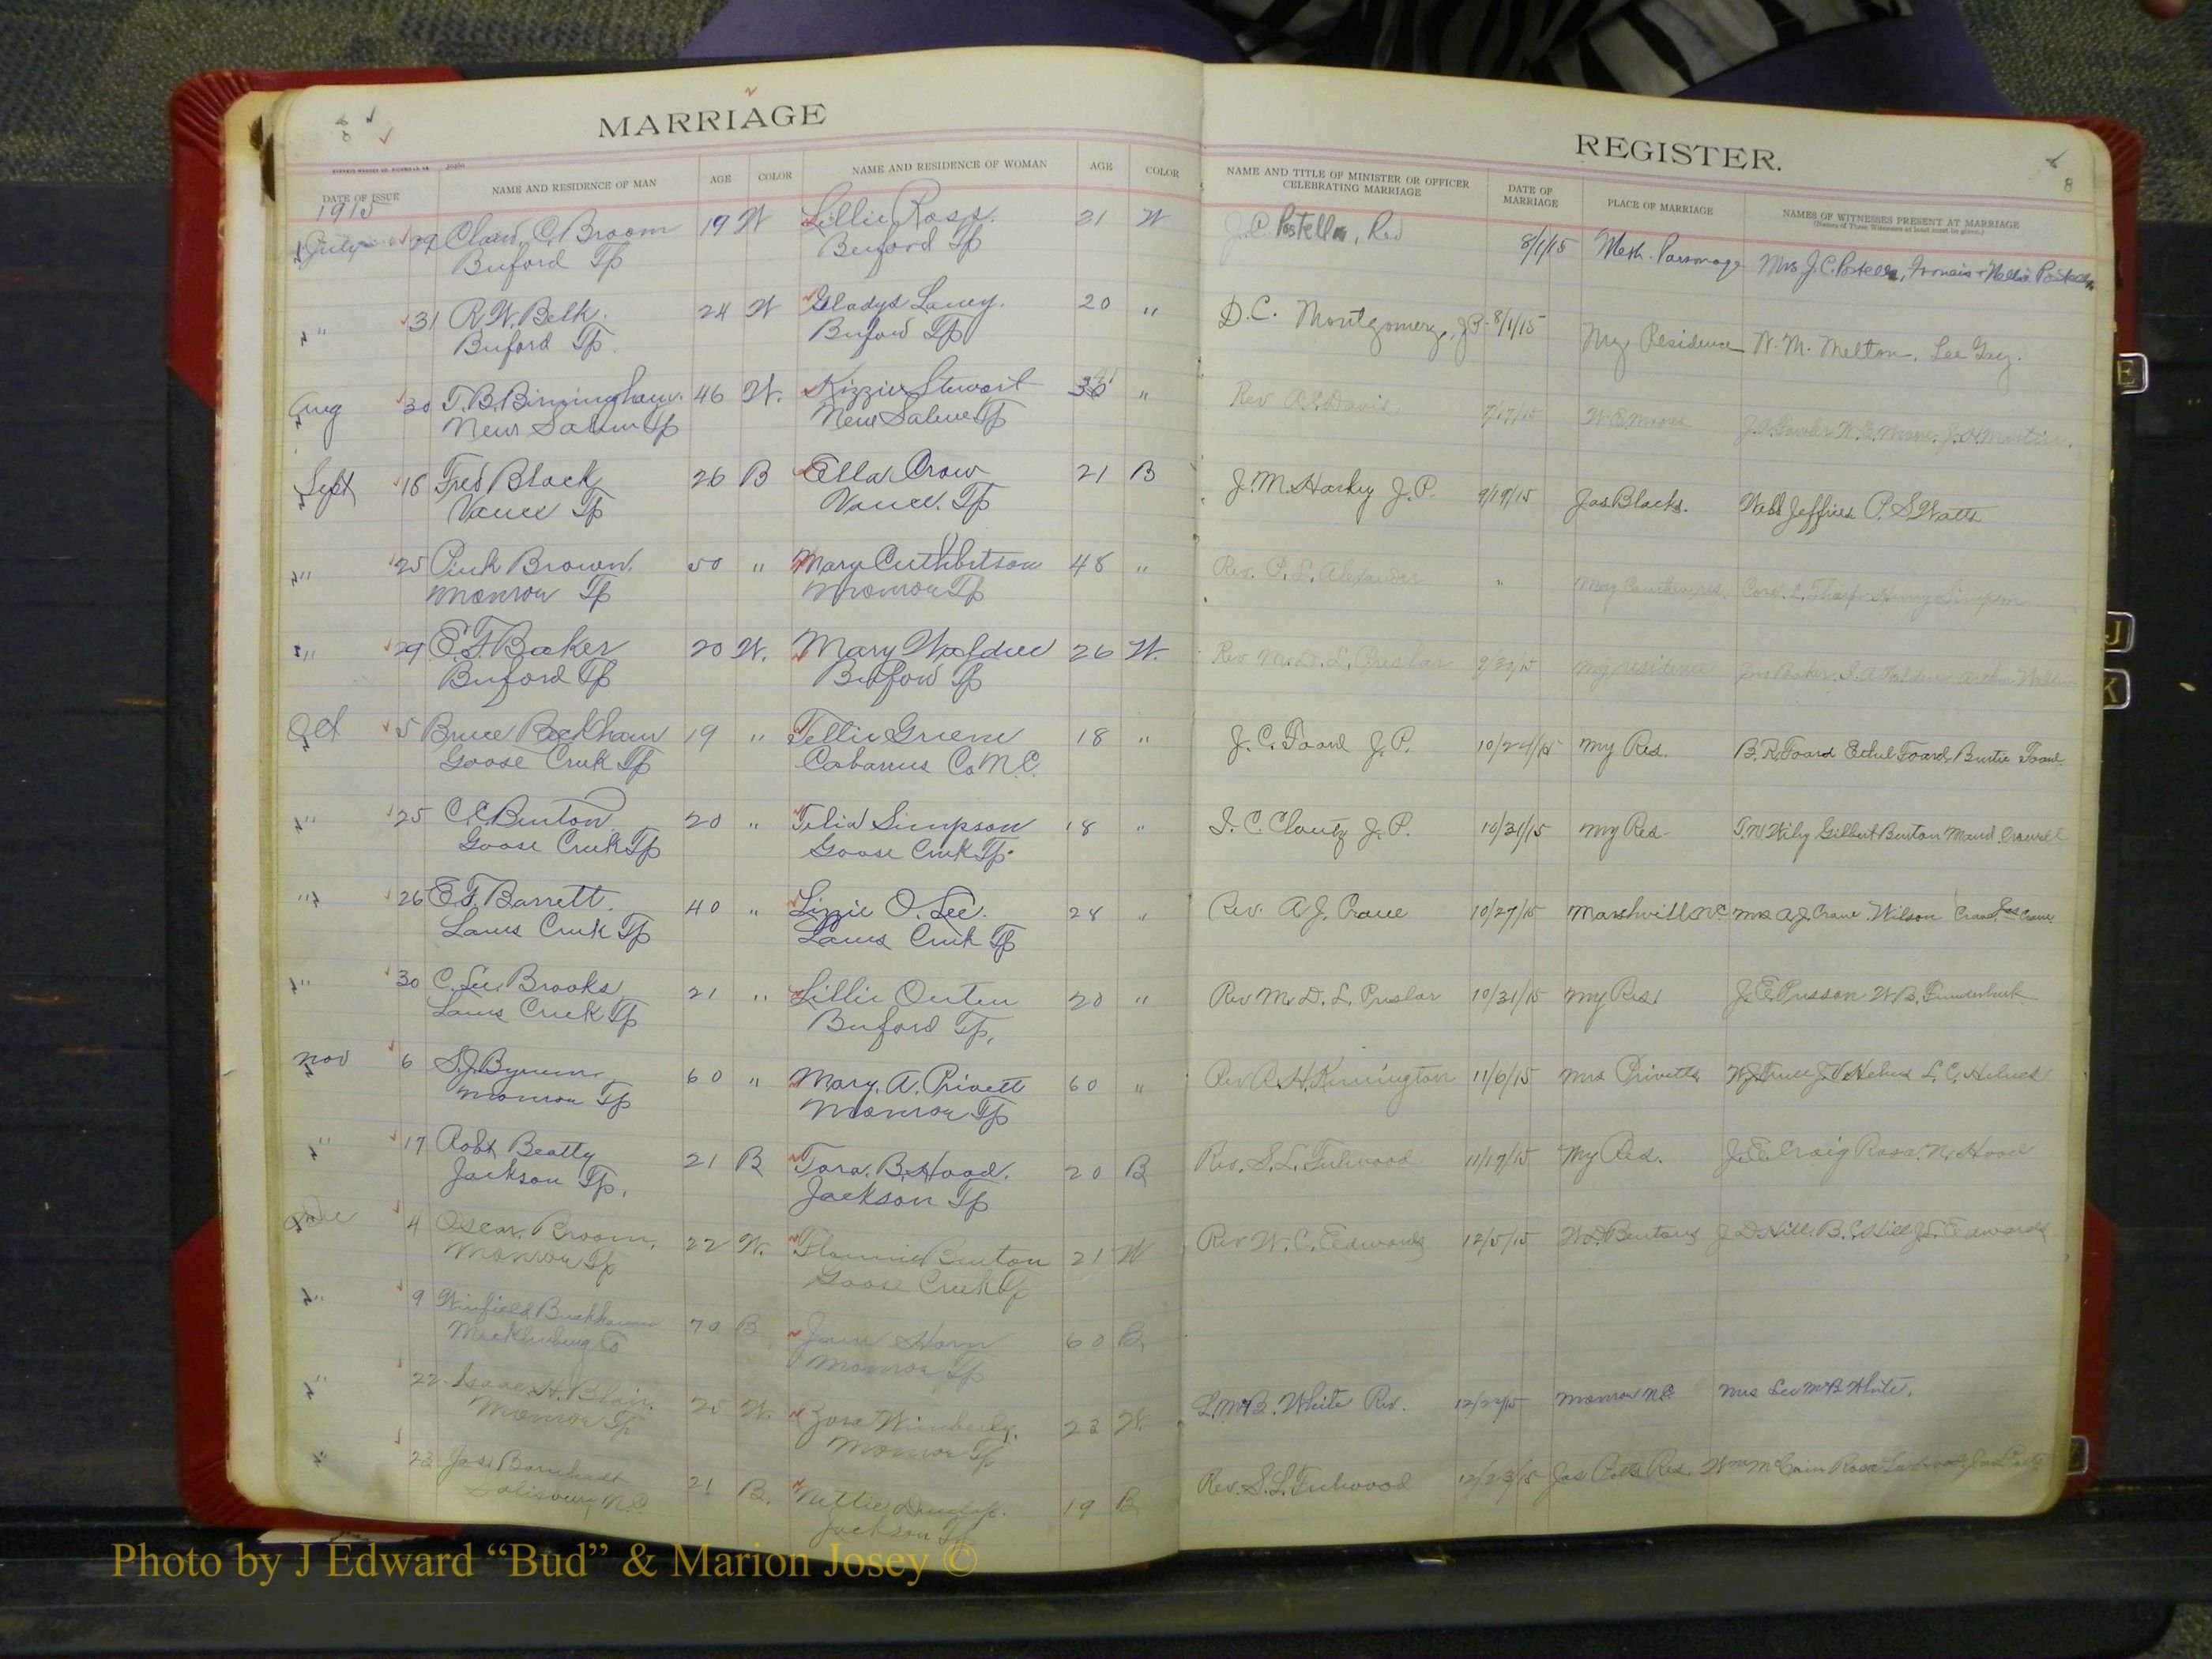 MARRIAGE
REGISTER.
8
8
DATE OF ISSUE NAME AND RESIDENCE OF MAN AGE COLOR NAME AND RESIDENCE OF WOMAN AGE COLOR NAME AND TITLE OF MINISTER OR OFFICER CELEBRATING MARRIAGE DATE OF MARRIAGE PLACE OF MARRIAGE NAMES OF WITNESSES PRESENT AT MARRIAGE
(Names of Three Witnesses at least must be given.)
1915
July 29 C. Broom 19 W Lillie Ross. 21 W J.C. Postelle, Rev 8/1/15 Meth. Parsonage Mrs J.C. Postelle,
Buford Tp Buford Tp
" 31 R.W. Belk. 24 W Gladys Laney. 20 " D.C. Montgomery, JP 8/1/15 My Residence N. M. Melton, Lee Gay.
Buford Tp. Buford Tp
Aug 30 T.B. Birmingham. 46 W. Kizzie Stewart " Rev A.C. Davis
New Salem Tp New Salem Tp
Sept 18 Fred Black 26 B Ella Crow 21 B J.M. Harkey J.P. 9/19/15 Jas Blacks. Jeffries P.S. Watts
Vance Tp Vance. Tp
" 25 Pink Brown. 50 " Mary Cuthbertson 48 " Rev. P.L. Alexander " Henry Simpson
Monroe Tp Monroe Tp
" 29 E.F. Baker 20 W. Mary Walden 26 W. Rev M.D.L. Preslar my residence
Buford Tp Buford Tp
Oct 5 Bruce Beckham 19 " Tellie Greene 18 " J.C. Foard J.P. 10/24/15 My Res. B.R. Foard Ethel Foard Foard
Goose Creek Tp Cabarrus Co N.C.
" 25 C.C. Benton 20 " Telia Simpson 18 " I.C. Clontz J.P. 10/31/15 My Res- Gilbert Benton Maud Crowell
Goose Creek Tp Goose Creek Tp.
" 26 E.F. Barrett. 40 " Lizzie O. Lee. 28 " Rev. A.J. Crane 10/27/15 Marshville NC Mrs A.J. Crane Wilson Crane
Lanes Creek Tp Lanes Creek Tp
" 30 C. Lee Brooks 21 " Lillie Outen 20 " Rev M.D.L. Preslar 10/31/15 My Res J.E. Presson W.B. Funderburk
Lanes Creek Tp Buford Tp.
Nov 6 S.J. Bynum 60 " Mary A. Privett 60 " Rev R.H. Kennington 11/6/15 Mrs Privetts L.C. Helms
Monroe Tp Monroe Tp
" 17 Robt Beatty 21 B Tora. B. Hood. 20 B Rev. S.L. Fulwood 11/17/15 My Res. J.E. Craig Rosa. N. Hood
Jackson Tp. Jackson Tp
Dec 4 Oscar Broom. 22 W. Flonnie Benton 21 W Rev W.C. Edwards 12/5/15 W.D. Bentons J.D. Hill. B.C. Hill J.L. Edwards
Monroe Tp Goose Creek Tp
" 9 Winfield Buckhannan 70 B Jane Horn 60 B.
Mecklenburg Co Monroe Tp
" 22 Isaac H. Blair. 25 W. Zora Wimberly. 23 W. L. McB. White Rev. 12/22/15 Monroe NC Mrs Leo McB White.
Monroe Tp Monroe Tp
" 23 Jas. Barnhardt 21 B. Nettie Dunlap. 19 B Rev. S.L. Fulwood 12/23/15 Res. Wm McCain
Salisbury N.C. Jackson Tp
E
J
K
Photo by J Edward “Bud” & Marion Josey ©